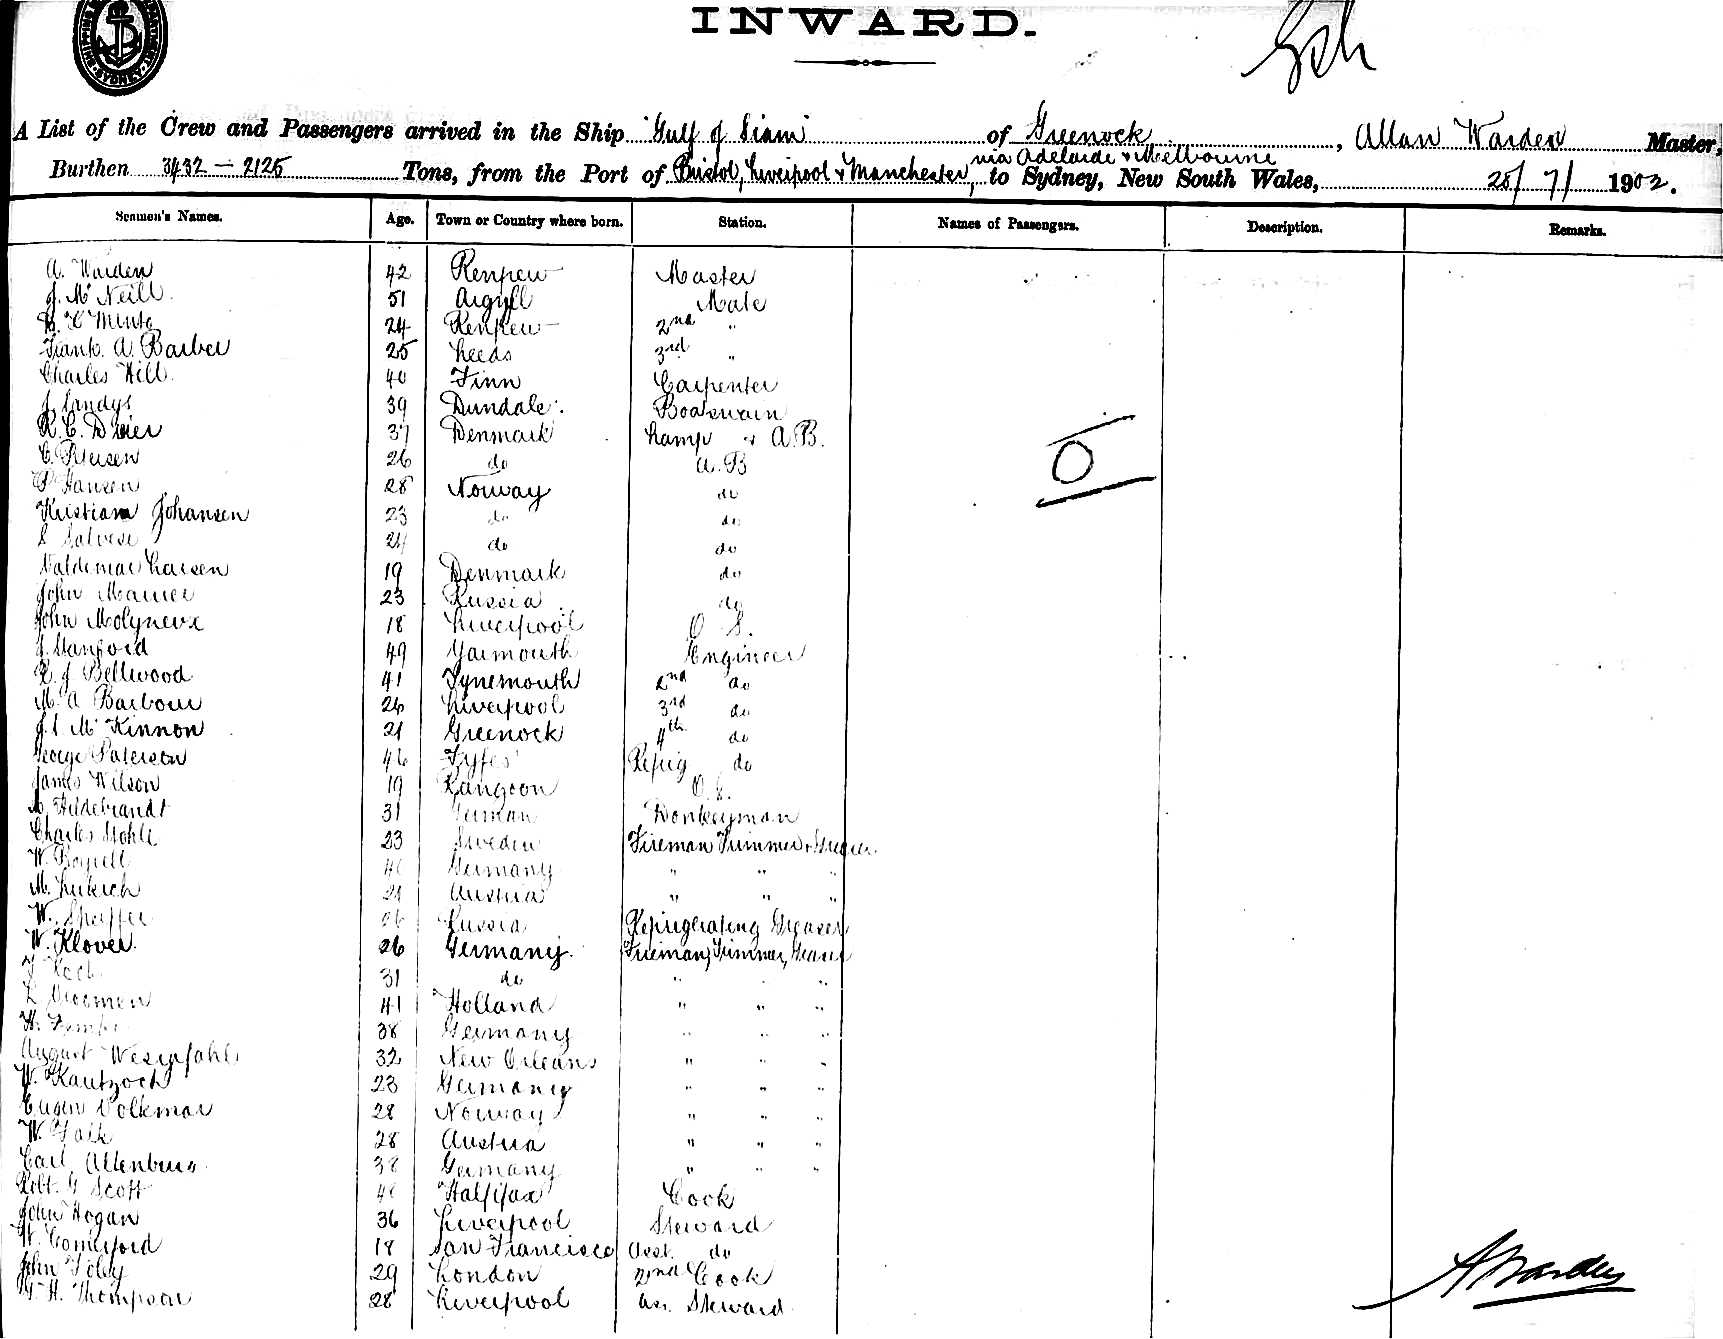 INWARD.
A List of the Crew and Passengers arrived in the Ship "Gulf of Siam" of Greenock, Allan Warden Master,
via Adelaide & Melbourne
Burthen 3432 — 2125 Tons, from the Port of Bristol, Liverpool & Manchester, to Sydney, New South Wales, 25/7/1902.
Seamen's Names. Age. Town or Country where born. Station. Names of Passengers. Description. Remarks.
A. Warden 42 Renfrew Master
J. McNeill. 51 Argyll Mate
Minto 24 Renfrew 2nd "
Frank. A. Barber 25 Leeds 3rd "
Charles Hill. 40 Finn Carpenter
J. Sandys 39 Dundalk. Boatswain
R. C. 37 Denmark Lamp & A.B.
C. Petersen 26 do A.B
P Hansen 28 Norway do
Kristian Johansen 23 do do
S Salvese 24 do do
Valdemar Larsen 19 Denmark do
John 23 Russia do
John Molyneux 18 Liverpool O.S.
J. Stanford 49 Yarmouth Engineer
R. J. Bellwood 41 Tynemouth 2nd do
M. A Barbour 26 Liverpool 3rd do
J. S McKinnon 21 Greenock 4th do
George Paterson 46 Fyfes Refrig do
James Wilson 19 Rangoon O.S.
Hildebrandt 31 German Donkeyman
Charles Stohle 23 Sweden Fireman Trimmer & Greaser.
W. 40 Germany " " "
M. 21 Austria " " "
W. 26 Russia Refrigerating Greaser
W. Klover. 26 Germany. Fireman, Trimmer, Greaser
31 do " " "
41 Holland " " "
H. 38 Germany " " "
August Westpfahl 32 New Orleans " "
W. Kautzoch 23 Germany " " "
Eugen Volkmar 28 Norway " " "
W. Falk 28 Austria " " "
Carl Altenburg. 38 Germany " " "
Robt. G Scott 40 Halfifax Cook
John Hogan 36 Liverpool Steward
W. Comerford 18 San Francisco Asst. do
John Foley 29 London 2nd Cook
H. Thompson 28 Liverpool Ass. Steward
0
A Warden